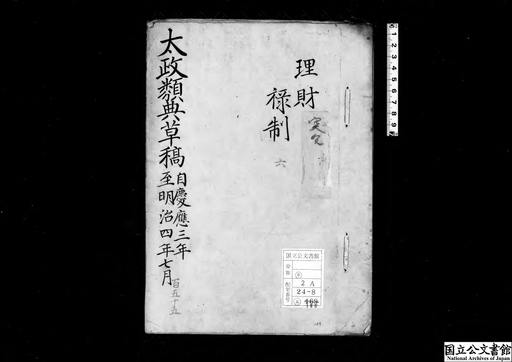 太政類典草稿
自慶應三年
至明治四年七月
百五十五
理財
禄制
六
国立公文書館
分類
配架番号
2A
24-8
国立公文書館
National Archives of Japan
1 2 3 4 5 6 7 8 9